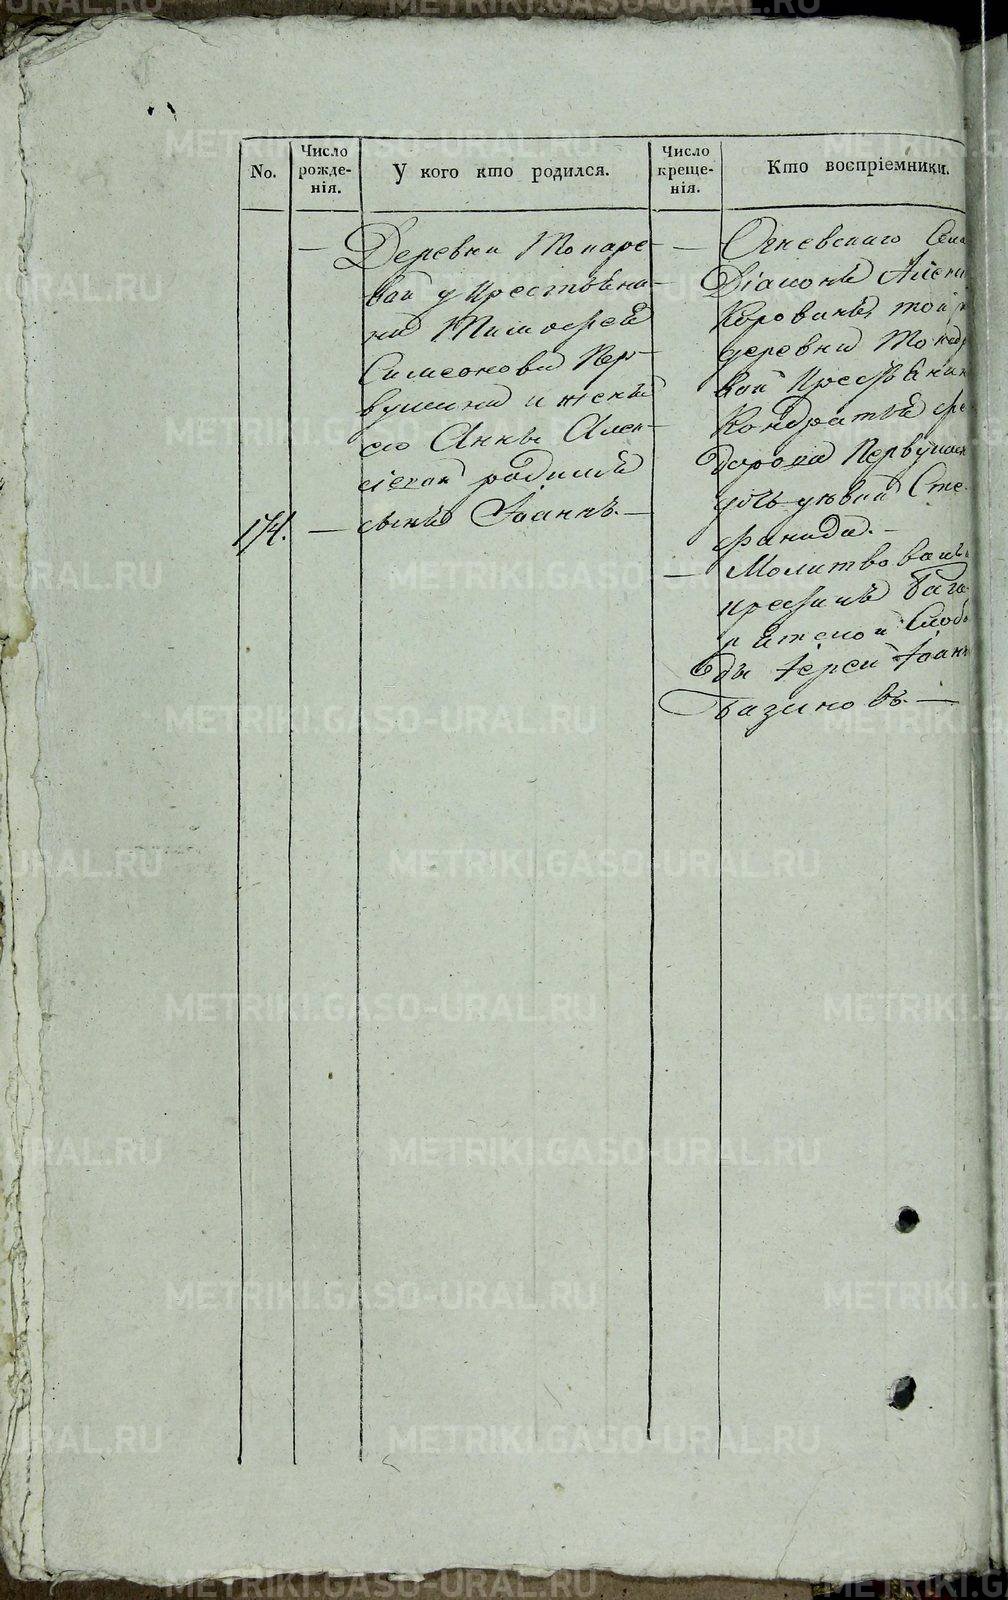 No.
Число рожде-нія.
У кого кто родился.
Число креще-нія.
Кто воспріемники.
— Деревни Токаре-
вой у крестьяни-
на Тимофея
Симеонова Пер-
вушина и жены
его Анны Алек-
сіевой родился
174. — сынъ Іоаннъ. —
— Огневскаго Села
Діакона Алексі
Коровина, той же
деревни Токаре
вой крестьянина
Кондратья Фе-
дорова Первушина
дочь дѣвка Сте-
фанида. —
— Молитвовалъ и
крестилъ Бага-
ряжской Слобо
ды Іерей Іоаннъ
Базиновъ. —
METRIKI.GASO-URAL.RU